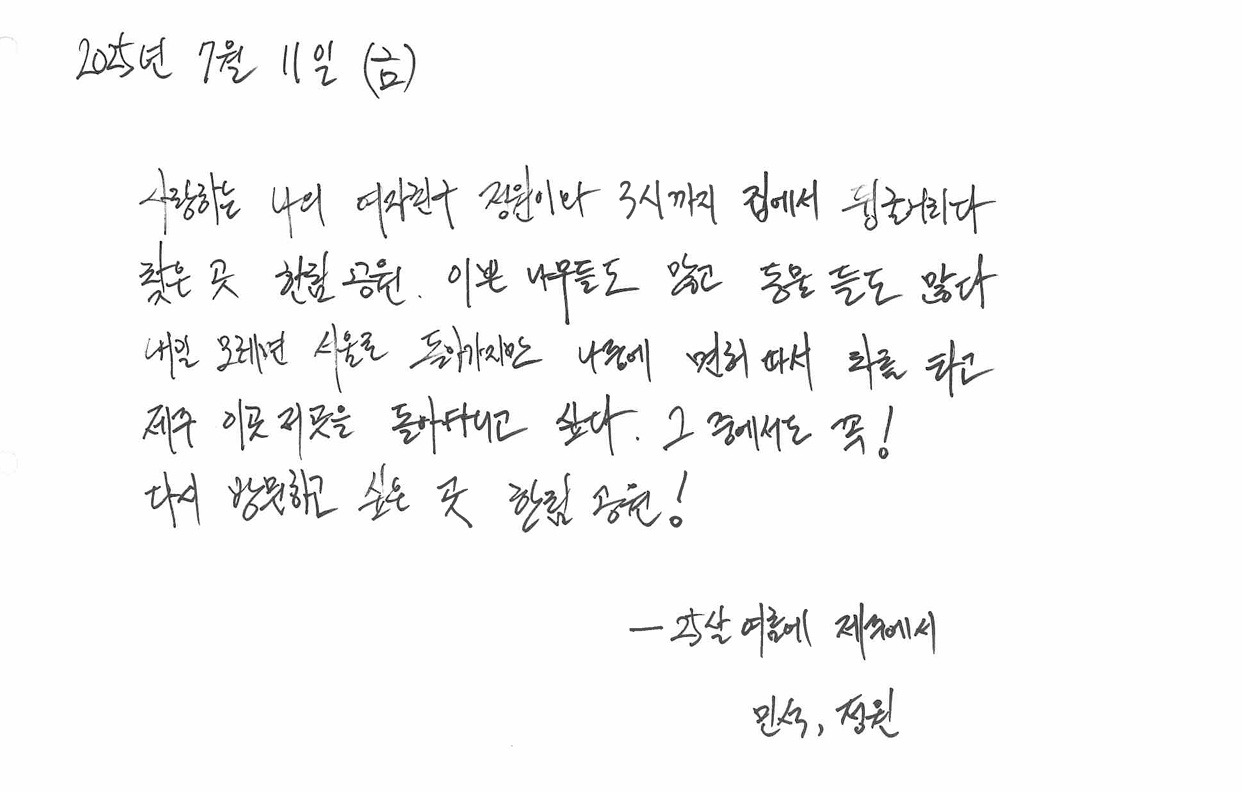 2025년 7월 11일 (금)
사랑하는 나의 여자친구 정원이와 3시까지 집에서 뒹굴거리다
찾은 곳 한림 공원. 이쁜 나무들도 많고 동물 들도 많다
내일 모레면 서울로 돌아가지만 나중에 면허 따서 차를 타고
제주 이곳 저곳을 돌아다니고 싶다. 그 중에서도 꼭!
다시 방문하고 싶은 곳 한림 공원!
— 25살 여름에 제주에서
민석, 정원